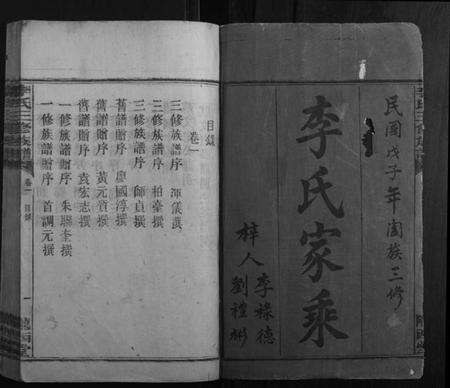 民國戊子年闔族三修
李氏家乘
梓人
李祿德
劉禮彬
目錄
卷一
三修族譜序 撰
三修族譜序 柏臺撰
三修族譜序 師貞撰
舊譜贈序 廖國淳撰
舊譜贈序 黃元資撰
舊譜贈序 袁宏志撰
一修族譜贈序 朱聯奎撰
一修族譜序 首調元撰
李氏三修族譜
卷一
目錄
一